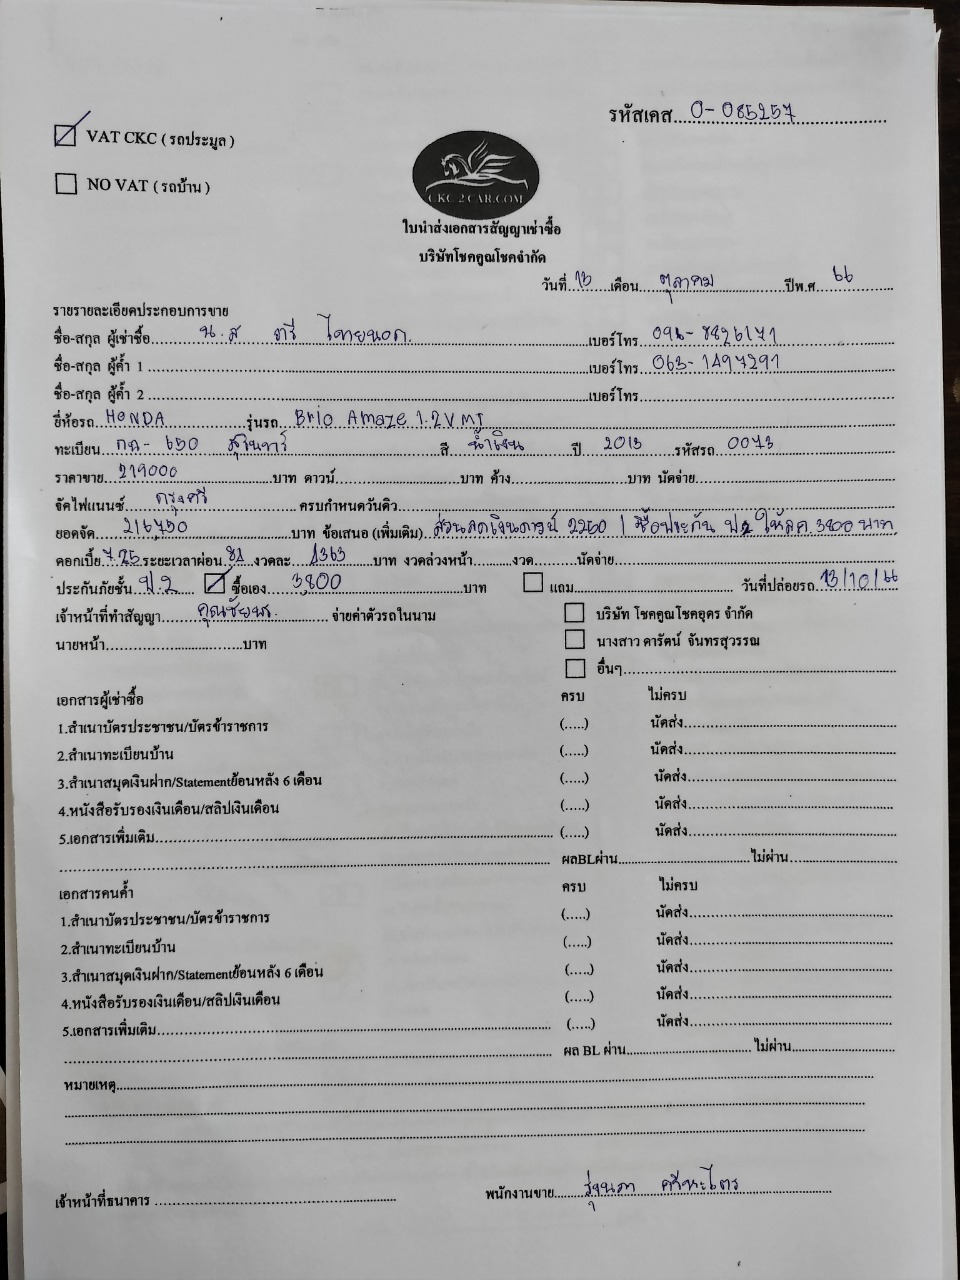 รหัสเคส 0-085257
VAT CKC ( รถประมูล )
NO VAT ( รถบ้าน )
CKC 2 CAR.COM
ใบนำส่งเอกสารสัญญาเช่าซื้อ
บริษัทโชคคูณโชคจำกัด
วันที่ 13 เดือน ตุลาคม ปีพ.ศ 66
รายรายละเอียดประกอบการขาย
ชื่อ-สกุล ผู้เช่าซื้อ น.ส ตรี ไทยนอก เบอร์โทร 096-8826171
ชื่อ-สกุล ผู้ค้ำ 1 เบอร์โทร 063-1497291
ชื่อ-สกุล ผู้ค้ำ 2 เบอร์โทร
ยี่ห้อรถ HONDA รุ่นรถ Brio Amaze 1.2V MT
ทะเบียน กฉ-650 สุรินทร์ สี น้ำเงิน ปี 2013 รหัสรถ 0073
ราคาขาย 219000 บาท ดาวน์ บาท ค้าง บาท นัดจ่าย
จัดไฟแนนซ์ กรุงศรี ครบกำหนดวันคิว
ยอดจัด 216,750 บาท ข้อเสนอ (เพิ่มเติม) ส่วนลดเงินดาวน์ 2250 / ซื้อประกัน ป2 ให้ลค. 3800 บาท
ดอกเบี้ย 7.25 ระยะเวลาผ่อน งวดละ บาท งวดล่วงหน้า งวด นัดจ่าย
ประกันภัยชั้น ป.2 ซื้อเอง 3,800 บาท แถม วันที่ปล่อยรถ 13/10/66
เจ้าหน้าที่ทำสัญญา จ่ายค่าตัวรถในนาม บริษัท โชคคูณโชคอุดร จำกัด
นายหน้า บาท นางสาว ดารัตน์ จันทรสุวรรณ
อื่นๆ
เอกสารผู้เช่าซื้อ ครบ ไม่ครบ
1.สำเนาบัตรประชาชน/บัตรข้าราชการ (.....) นัดส่ง
2.สำเนาทะเบียนบ้าน (.....) นัดส่ง
3.สำเนาสมุดเงินฝาก/Statementย้อนหลัง 6 เดือน (.....) นัดส่ง
4.หนังสือรับรองเงินเดือน/สลิปเงินเดือน (.....) นัดส่ง
5.เอกสารเพิ่มเติม (.....) นัดส่ง
ผลBLผ่าน ไม่ผ่าน
เอกสารคนค้ำ ครบ ไม่ครบ
1.สำเนาบัตรประชาชน/บัตรข้าราชการ (.....) นัดส่ง
2.สำเนาทะเบียนบ้าน (.....) นัดส่ง
3.สำเนาสมุดเงินฝาก/Statementย้อนหลัง 6 เดือน (.....) นัดส่ง
4.หนังสือรับรองเงินเดือน/สลิปเงินเดือน (.....) นัดส่ง
5.เอกสารเพิ่มเติม (.....) นัดส่ง
ผล BL ผ่าน ไม่ผ่าน
หมายเหตุ
เจ้าหน้าที่ธนาคาร พนักงานขาย รุ่งนภา